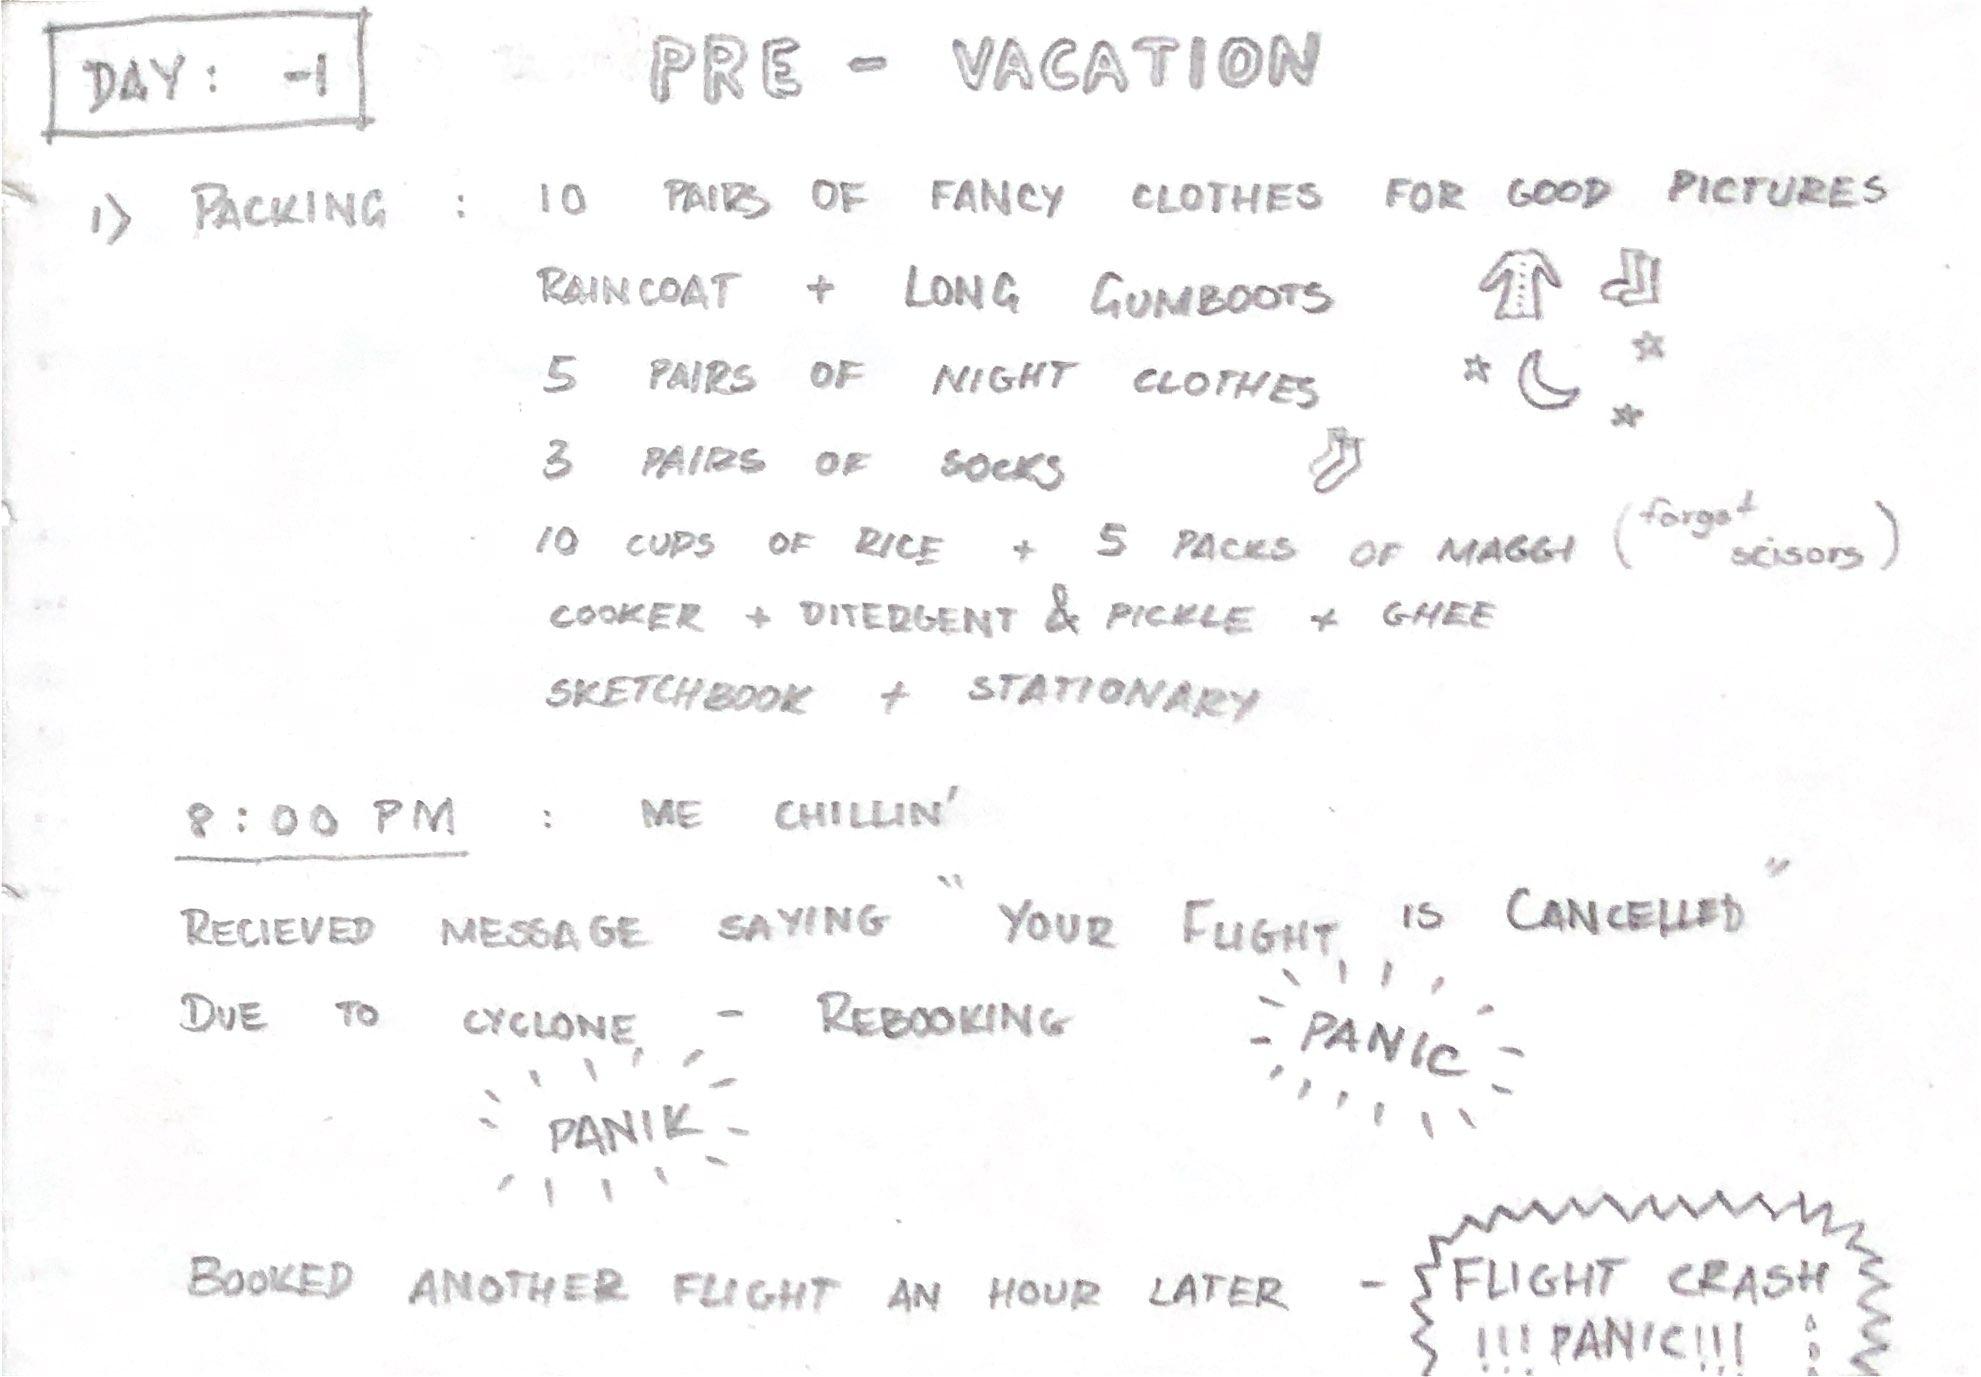 DAY: -1
PRE - VACATION
1) PACKING : 10 PAIRS OF FANCY CLOTHES FOR GOOD PICTURES
RAINCOAT + LONG GUMBOOTS
5 PAIRS OF NIGHT CLOTHES
3 PAIRS OF SOCKS
10 CUPS OF RICE + 5 PACKS OF MAGGI (forgot scisors)
COOKER + DITERGENT & PICKLE + GHEE
SKETCHBOOK + STATIONARY
8:00 PM : ME CHILLIN'
RECIEVED MESSAGE SAYING "YOUR FLIGHT IS CANCELLED"
DUE TO CYCLONE - REBOOKING
PANIC
PANIK
BOOKED ANOTHER FLIGHT AN HOUR LATER - FLIGHT CRASH
!!! PANIC!!!